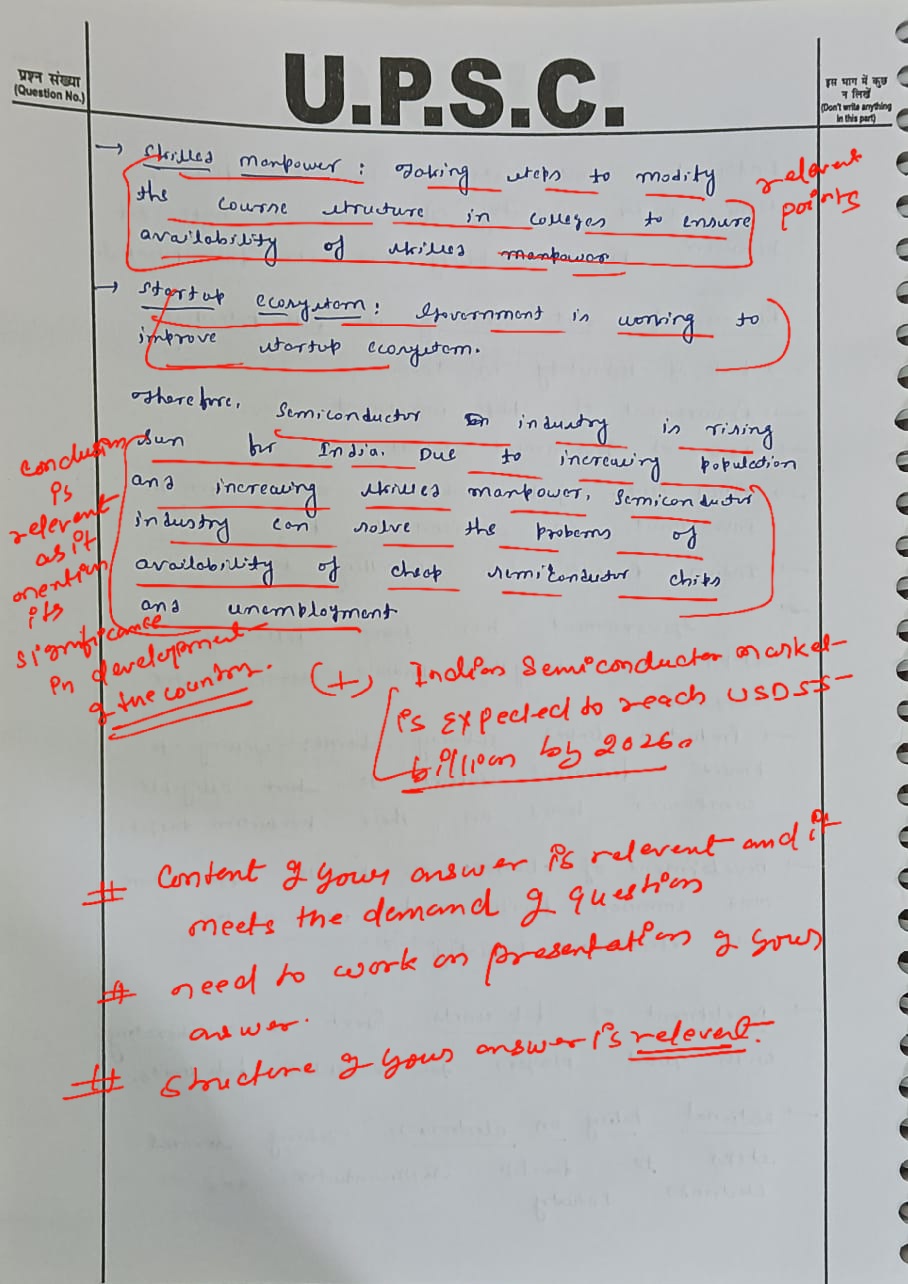 U.P.S.C.
प्रश्न संख्या
(Question No.)
इस भाग में कुछ
न लिखें
(Don't write anything
in this part)
→ Skilled manpower : Taking steps to modify
the course structure in colleges to ensure
availability of skilled manpower
relevent
points
→ Startup ecosystem : Government is working to
improve startup ecosystem.
Therefore, Semiconductor industry is rising
sun for India. Due to increasing population
and increasing skilled manpower, semiconductor
industry can solve the probems of
availability of cheap semiconductor chips
and unemployment
Conclusion
is
relevent
as it
mention
its
significance
in development
of the country.
(+) Indian Semiconductor market
is expected to reach USD 55
billion by 2026.
# Content of your answer is relevent and it
meets the demand of question
# need to work on presentation of your
answer.
# Structure of your answer is relevent.